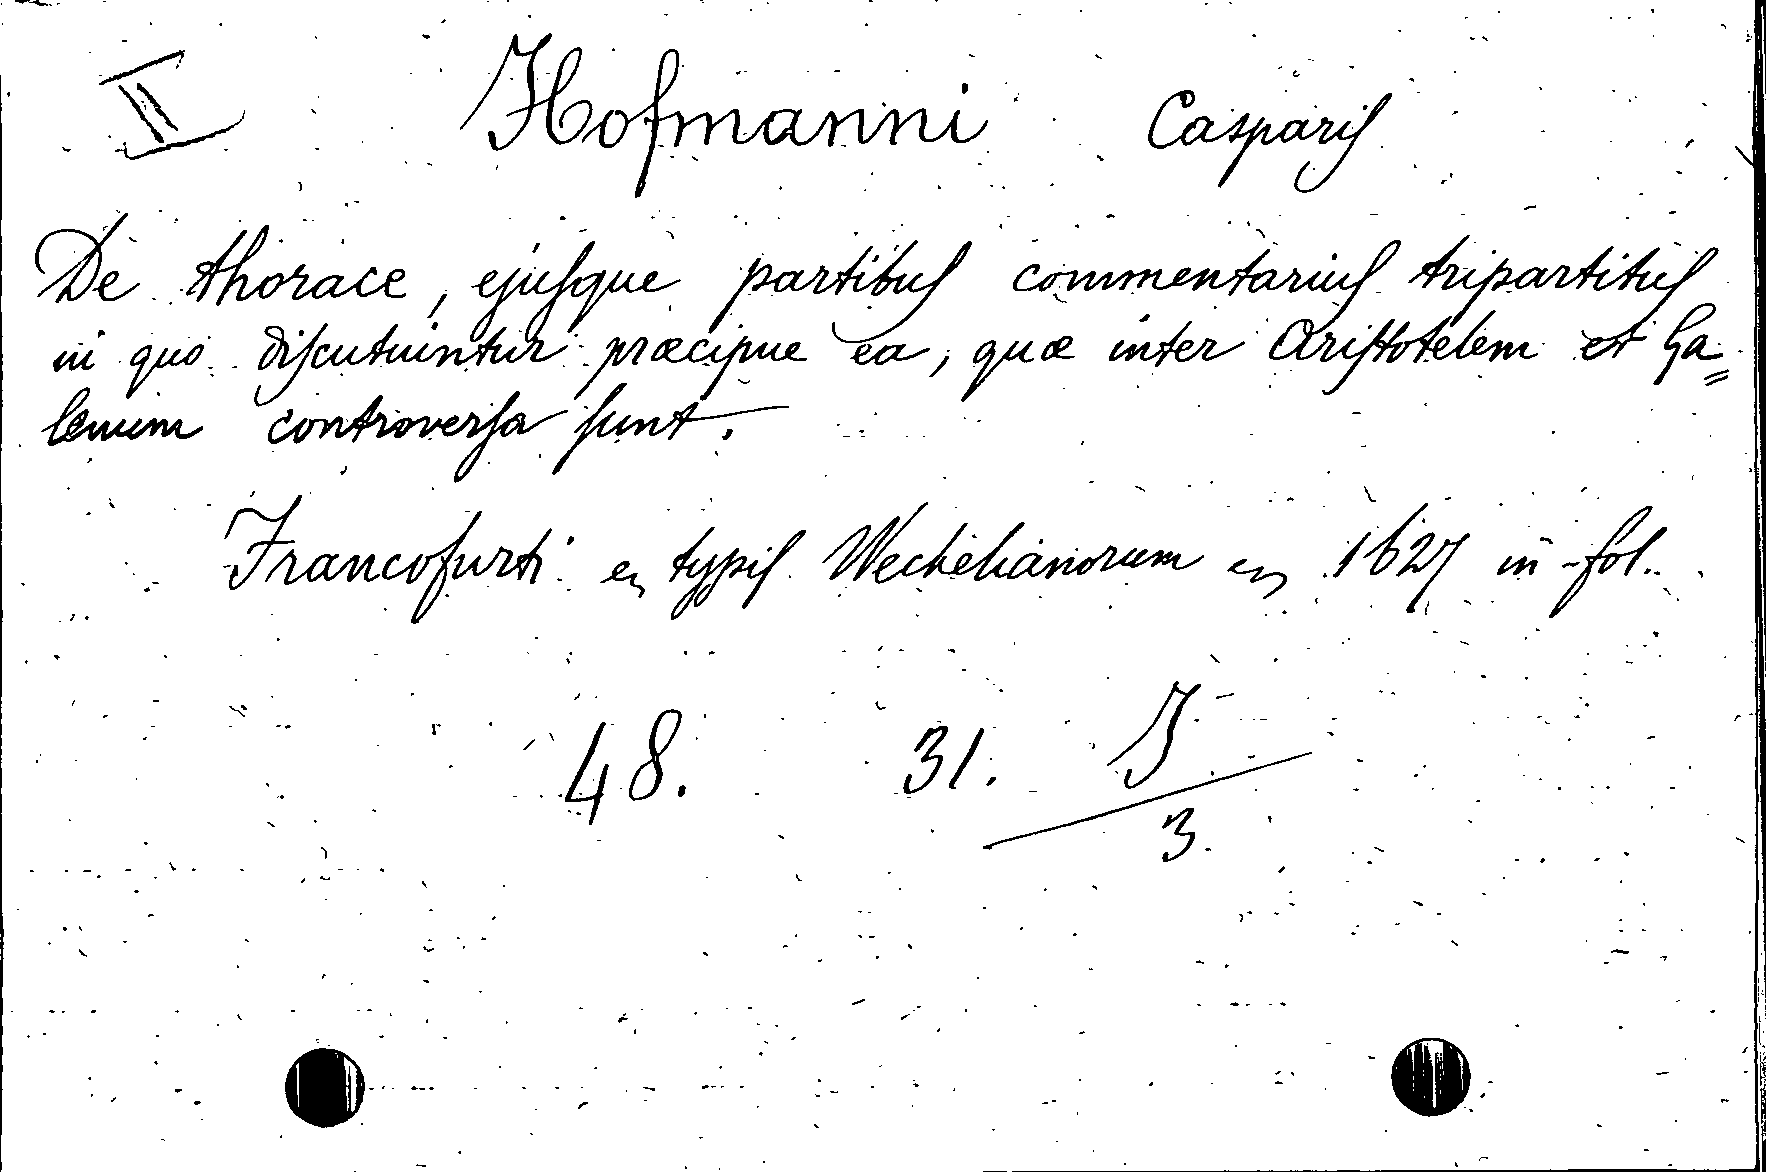 II Hofmanni Casparis
De thorace, ejusque partibus commentarius tripartitus
in quo discutiuntur præcipue ea, quæ inter Aristotelem et Ga=
lenum controversa sunt.
Francofurti en typis Wechelianorum en 1627 in-fol.
48. 31. J
3.